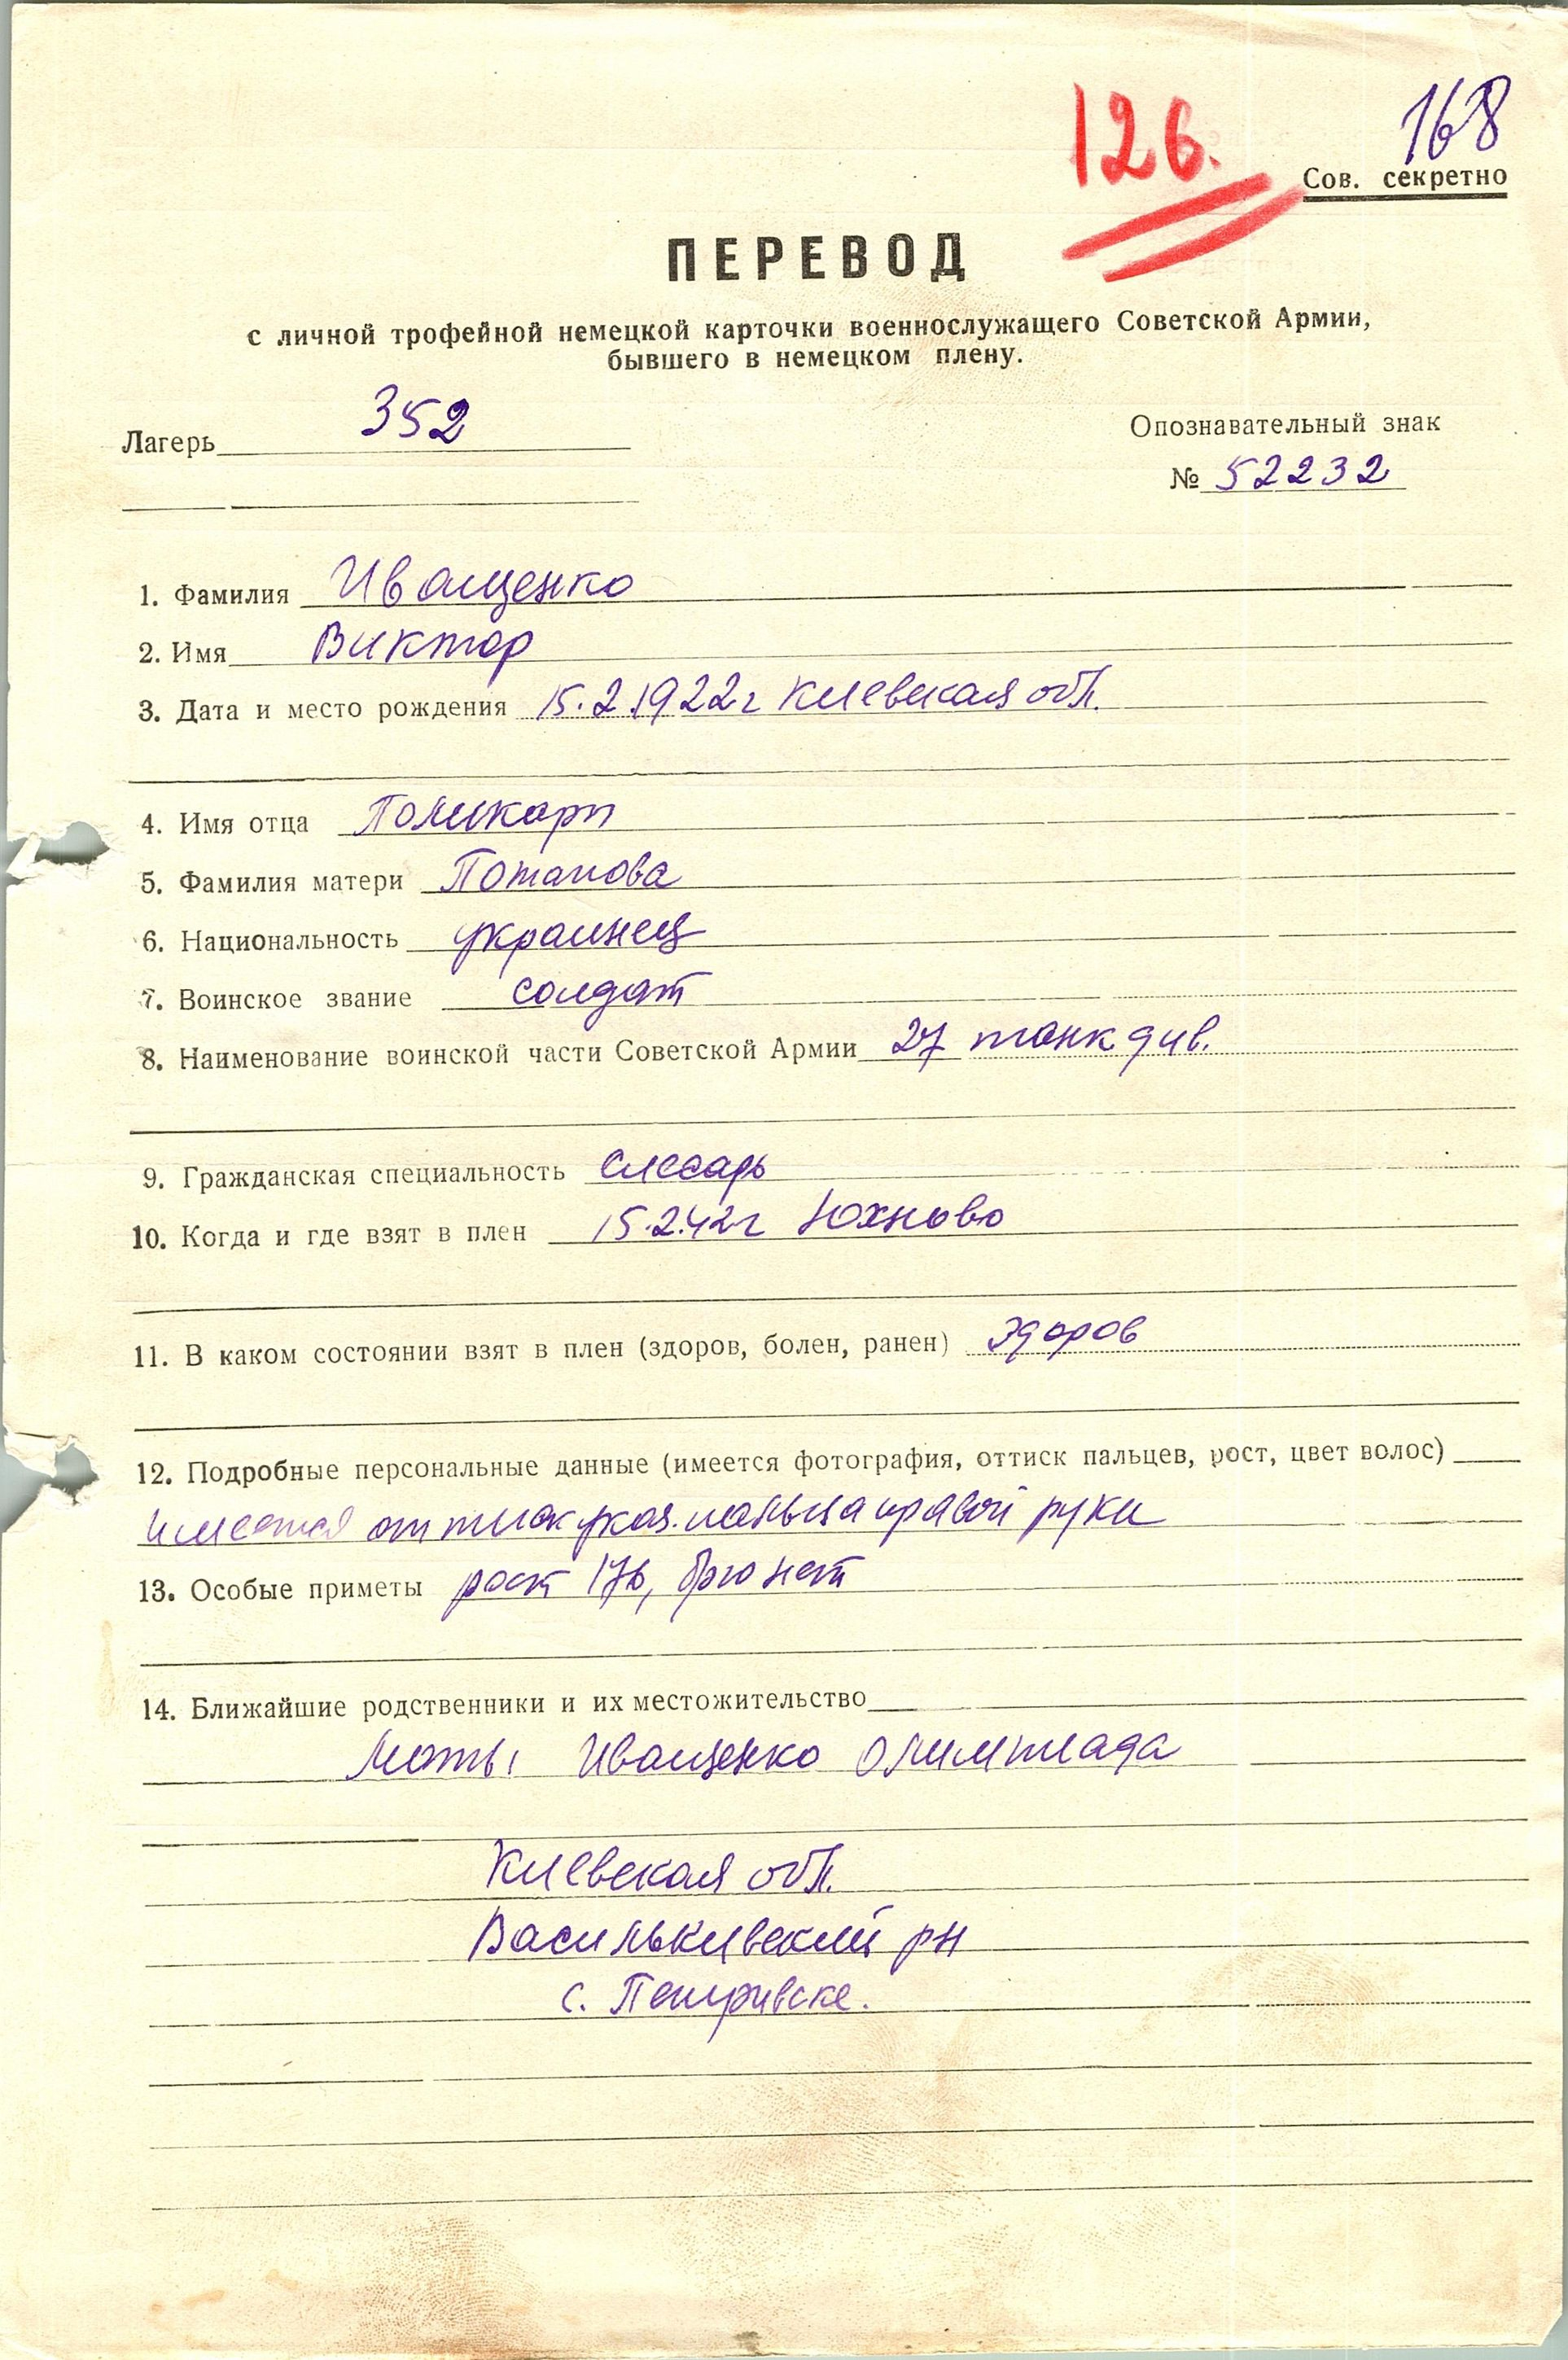 126.
168
Сов. секретно
ПЕРЕВОД
с личной трофейной немецкой карточки военнослужащего Советской Армии,
бывшего в немецком плену.
Лагерь 352
Опознавательный знак
№ 52232
1. Фамилия Иващенко
2. Имя Виктор
3. Дата и место рождения 15.2.1922г Киевская обл.
4. Имя отца Поликарп
5. Фамилия матери Потапова
6. Национальность украинец
7. Воинское звание солдат
8. Наименование воинской части Советской Армии 27 танк див.
9. Гражданская специальность слесарь
10. Когда и где взят в плен 15.2.42г Юхново
11. В каком состоянии взят в плен (здоров, болен, ранен) здоров
12. Подробные персональные данные (имеется фотография, оттиск пальцев, рост, цвет волос)
имеется оттиск указ. пальца правой руки
13. Особые приметы рост 176, брюнет
14. Ближайшие родственники и их местожительство
Мать: Иващенко Олимпиада
Киевская обл.
Васильки­вский рн
с. Петривске.